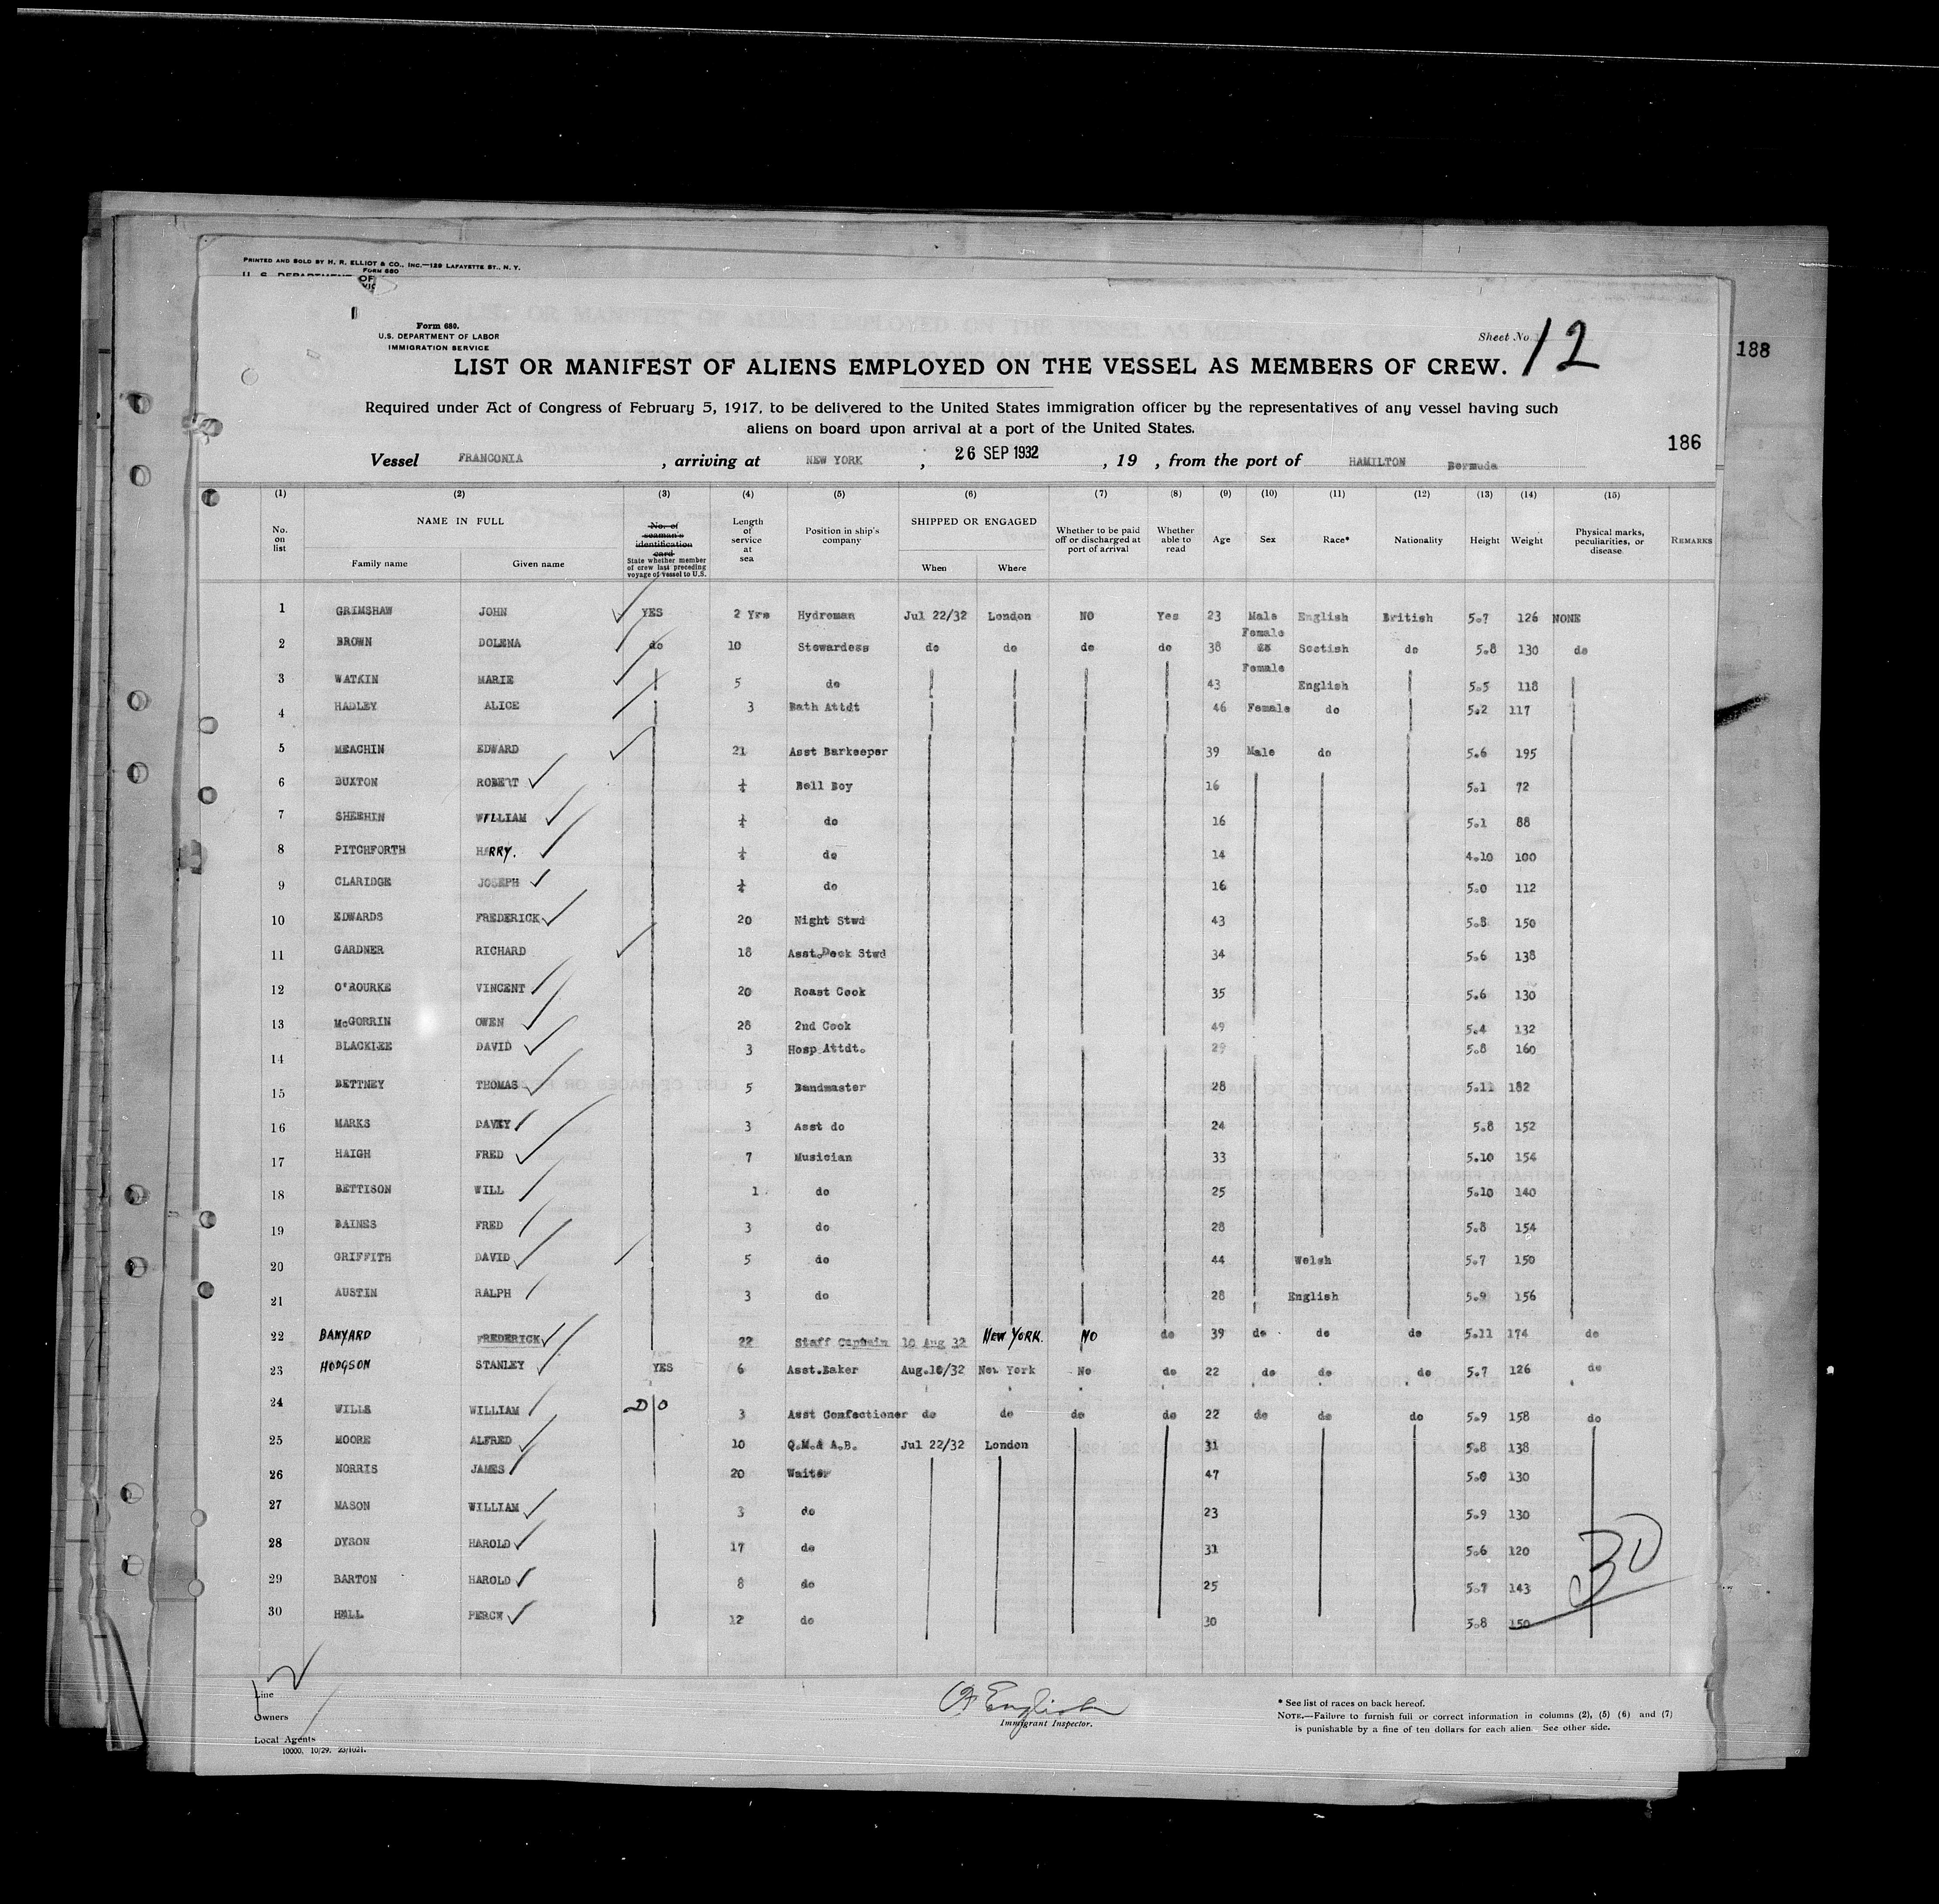 PRINTED AND SOLD BY H. R. ELLIOT & CO., INC.—129 LAFAYETTE ST., N. Y.
FORM 680
U. S. DEPARTMENT OF
Form 680.
U.S. DEPARTMENT OF LABOR
IMMIGRATION SERVICE
Sheet No 12
188
LIST OR MANIFEST OF ALIENS EMPLOYED ON THE VESSEL AS MEMBERS OF CREW.
Required under Act of Congress of February 5, 1917, to be delivered to the United States immigration officer by the representatives of any vessel having such
aliens on board upon arrival at a port of the United States.
186
Vessel FRANCONIA , arriving at NEW YORK , 26 SEP 1932 , 19 , from the port of HAMILTON Bermuda
(1) (2) (3) (4) (5) (6) (7) (8) (9) (10) (11) (12) (13) (14) (15)
No. on list NAME IN FULL Family name Given name No. of seaman's identification card State whether member of crew last preceding voyage of vessel to U.S. Length of service at sea Position in ship's company SHIPPED OR ENGAGED When Where Whether to be paid off or discharged at port of arrival Whether able to read Age Sex Race* Nationality Height Weight Physical marks, peculiarities, or disease REMARKS
1 GRIMSHAW JOHN YES 2 Yrs Hydroman Jul 22/32 London NO Yes 23 Male English British 5.7 126 NONE
2 BROWN DOLENA do 10 Stewardess do do do do 38 Female Scotish do 5.8 130 do
3 WATKIN MARIE 5 do 43 Female English 5.5 118
4 HADLEY ALICE 3 Bath Attdt 46 Female do 5.2 117
5 MEACHIN EDWARD 21 Asst Barkeeper 39 Male do 5.6 195
6 BUXTON ROBERT Bell Boy 16 5.1 72
7 SHEEHIN WILLIAM do 16 5.1 88
8 PITCHFORTH HARRY. do 14 4.10 100
9 CLARIDGE JOSEPH do 16 5.0 112
10 EDWARDS FREDERICK 20 Night Stwd 43 5.8 150
11 GARDNER RICHARD 18 Asst.Deck Stwd 34 5.6 138
12 O'ROURKE VINCENT 20 Roast Cook 35 5.6 130
13 McGORRIN OWEN 28 2nd Cook 49 5.4 132
14 BLACKLEE DAVID 3 Hosp Attdt. 29 5.8 160
15 BETTNEY THOMAS 5 Bandmaster 28 5.11 182
16 MARKS DAVEY 3 Asst do 24 5.8 152
17 HAIGH FRED 7 Musician 33 5.10 154
18 BETTISON WILL 1 do 25 5.10 140
19 BAINES FRED 3 do 28 5.8 154
20 GRIFFITH DAVID 5 do 44 Welsh 5.7 150
21 AUSTIN RALPH 3 do 28 English 5.9 156
22 BANYARD FREDERICK 22 Staff Captain 10 Aug 32 NEW YORK. NO do 39 do do do 5.11 174 do
23 HODGSON STANLEY YES 6 Asst.Baker Aug.10/32 New York No do 22 do do do 5.7 126 do
24 WILLS WILLIAM DO 3 Asst Confectioner do do do do 22 do do do 5.9 158 do
25 MOORE ALFRED 10 Q.M.& A.B. Jul 22/32 London 31 5.8 138
26 NORRIS JAMES 20 Waiter 47 130
27 MASON WILLIAM 3 do 23 5.9 130
28 DYSON HAROLD 17 do 31 5.6 120
29 BARTON HAROLD 8 do 25 5.7 143
30 HALL PERCY 12 do 30 5.8 150
30
Line
Owners
Local Agents
10000. 10/29. 23/1021.
English
Immigrant Inspector.
* See list of races on back hereof.
NOTE.—Failure to furnish full or correct information in columns (2), (5) (6) and (7)
is punishable by a fine of ten dollars for each alien. See other side.